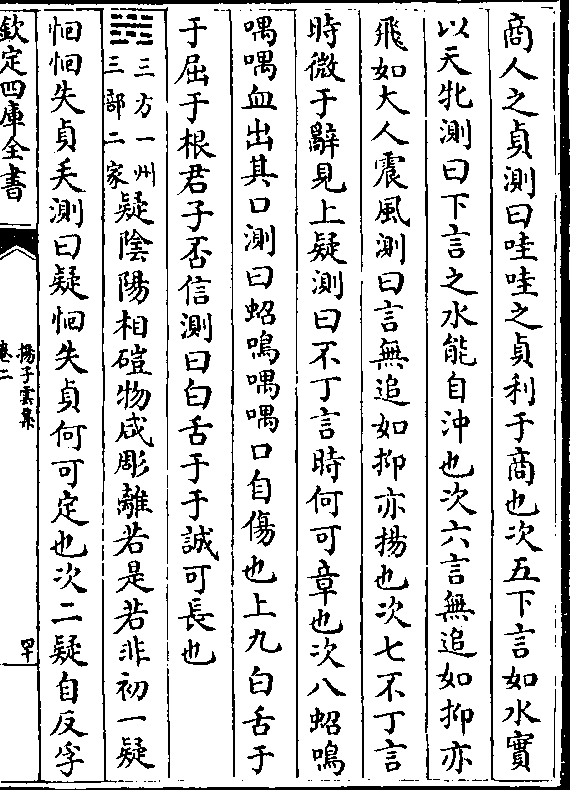 商人之貞測曰哇哇之貞利于商也次五下言如水實
以天牝測曰下言之水能自沖也次六言無追如抑亦
飛如大人震風測曰言無追如抑亦揚也次七不丁言
時微于辭見上疑測曰不丁言時何可章也次八蛁鳴
喁喁血出其口測曰蛁鳴喁喁口自傷也上九白舌于
于屈于根君子否信測曰白舌于于誠可長也
三方一州
三部二家
疑陰陽相磑物咸彫離若是若非初一疑
恛恛失貞矢測曰疑恛失貞何可定也次二疑自反孚
欽定四庫全書
揚子雲集
卷二
罕